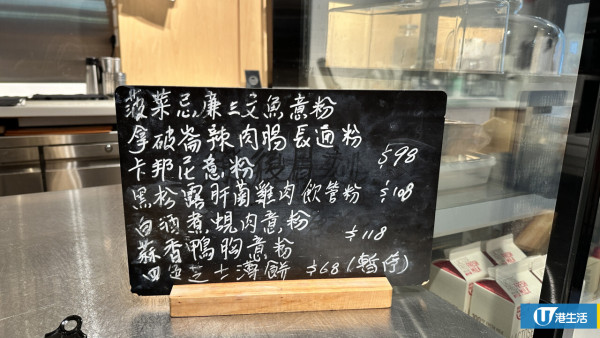 菠菜忌廉三文魚意粉
拿破崙辣肉腸長通粉
卡邦尼意粉 $98
黑松露肝菌雞肉飲管粉 $108
白酒煮蜆肉意粉
蒜香鴨胸意粉 $118
四色芝士薄餅 $68(暫停)
U 港生活